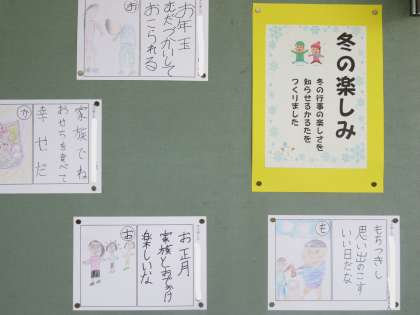 冬の楽しみ
冬の行事の楽しさを
知らせるかるたを
つくりました
お年玉
むだづかいして
おこられる
お
家族でね
おせちを食べて
幸せだ
か
お正月
家族とおでかけ
楽しいな
お
もちつきし
思い出のこす
いい日だな
も